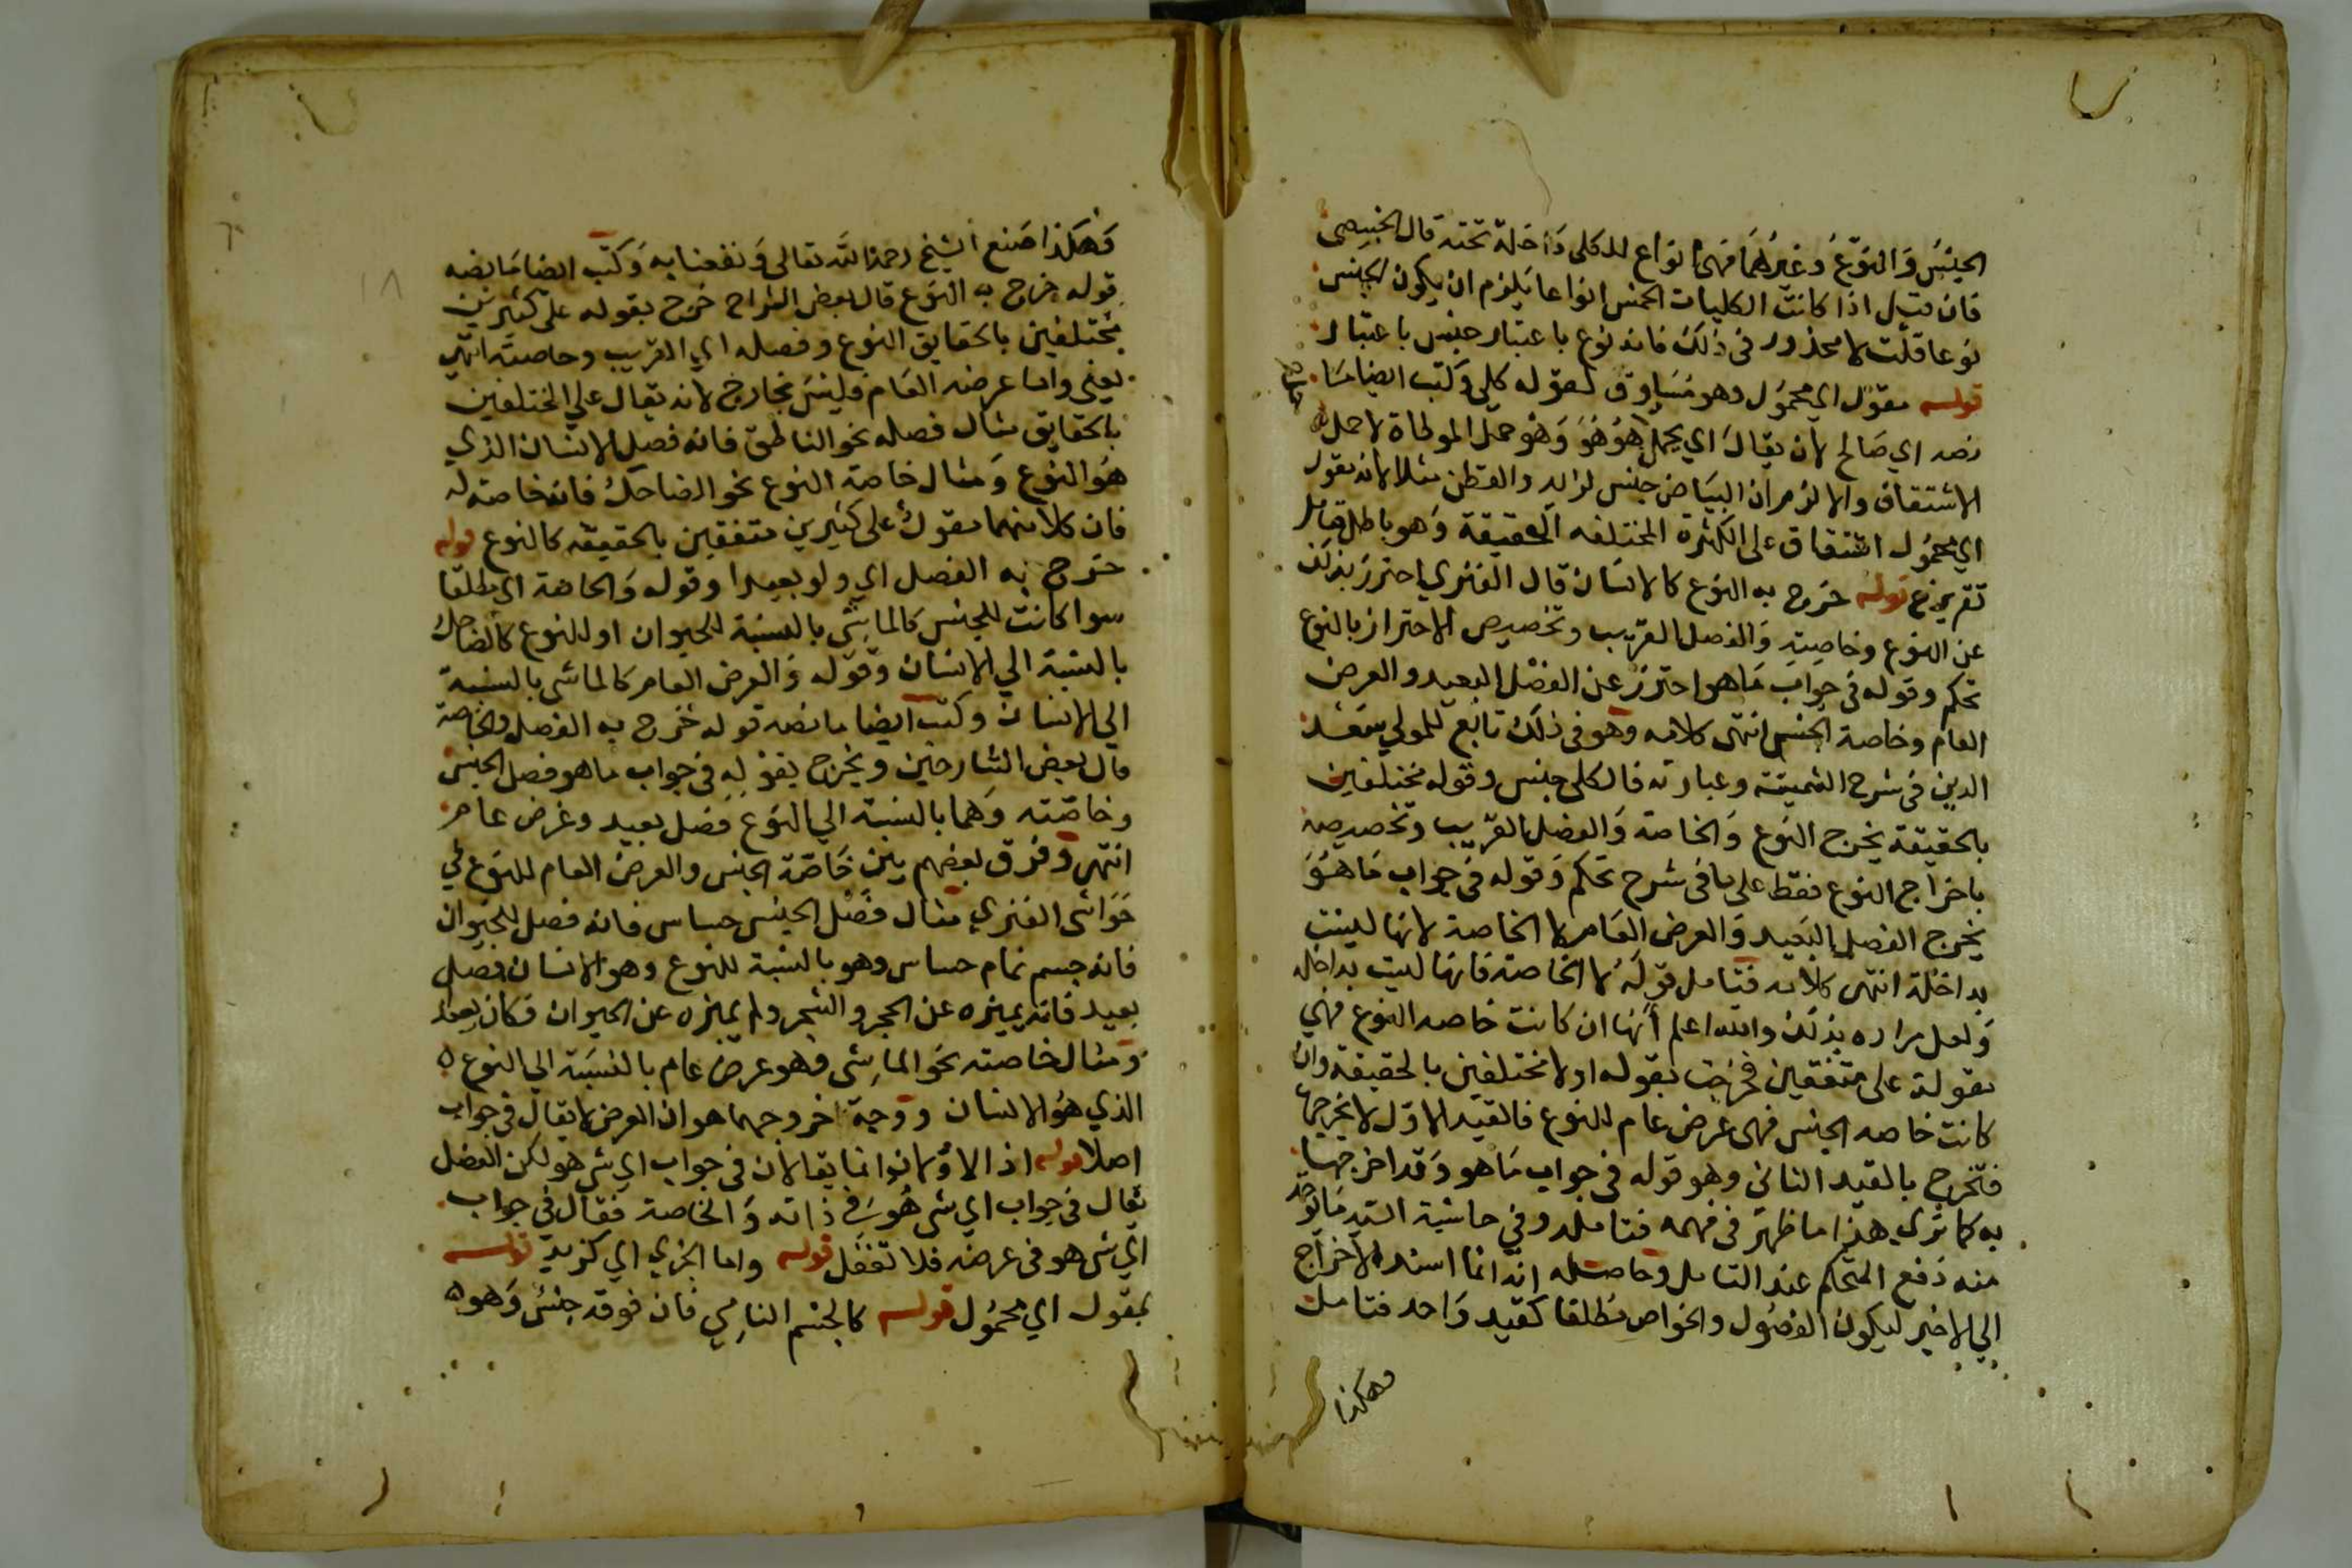 الجنسُ وَالنوّعُ وَغيرُهُمَا فهى انواع للكلى دَاخلة تحته قال الخبيصى
فان قيل اذا كانت الكليات الخمس انواعا يَلزم ان يكون الجنس
نوعا قلت لا محذور فى ذلك فانه نوع باعتبار جنس باعتبار
قوله مقوُل اي محموُل وهو مُسَاوق لقوله كلى وكتب ايضا مَا
نصه اي صَالح لان يقالَ اي يحمل هُوَ هُوَ وَهُو حمل المواطاة لا حمل
الاشتقاق والا لزم ان البيَاض جنس لزايد والقطن مثلا لانه يقول
اي محمُول اشتقاق على الكثرة المختلفه الحقيقة وَهو باطل قابل
تفريع قوله خرج به النوع كالانسَان قال الفنري احترز بذلك
عن النوع وخاصِيتِهِ وَالفصل القريب وتخصيص الاحتراز بالنوع
تحكم وقوله فى جواب مَاهو احترز عن الفصْل البعيد والعرض
العام وخاصة الجنس انتهى كلامه وهو فى ذلك تابع للمولى سَعْد
الدين فى شرح الشمسية وعبارته فالكلى جنس وقوله مختلفين
بالحقيقة يخرج النوع وَالخاصة وَالفصل القريب وتخصيصه
باخراج النوع فقط على ما فى شرح تحكم وَقوله فى جواب مَا هُوَ
يخرج الفصل البَعيد وَالعرض العَام لا الخاصة لانها ليست
بداخلة انتهى كلامه فتامل قولَهُ لا الخاصة فانها ليست بداخله
وَلعل مراده بذلك والله اعلم أنها ان كانت خاصه النوع فهي
مقولة على متفقين فخرَجت بقوله اولا مختلفين بالحقيقة وان
كانت خاصه الجنس فهى عرض عام للنوع فالقيد الاوّل لا يخرجها
فتخرج بالقيد الثانى وهو قوله فى جواب مَاهو وَقد اخرجها
به كما ترى هذا ما ظهَر فى فهمه فتامله وفي حاشية السيد مَا يوخذ
منه دَفع التحكم عند التامل وحاصله انه انما اسند الاخرَاج
الي الاخير ليكون الفصُول والخواص مُطلقا كقيد وَاحد فتامل
فهكذا
فَهكذا صَنع الشيخ رحمَه الله تعالى وَنفعنا به وَكتب ايضا مَا نصه
قوله خرج به النوع قال بعض الشراح خرج بقوله على كثيرين
مُختلفين بالحقايق النوع وفصله اي القريب وخاصته انتهى
يعنى واما عرضه العَام فليسَ بخارج لانه يقال على المختلفين
بالحقايق مثال فصله نحو الناطق فانه فصل الانسان الذي
هُو النوع وَمثال خاصة النوع نحو الضاحك فانه خاصة له
فان كلا منهما مقولٌ على كثيرين متفقين بالحقيقه كالنوع قوله
خرج به الفصل اي ولو بعيدا وقوله وَالخاصة اي مطلقا
سوا كانت للجنس كالماشى بالنسبة للحيوان او للنوع كالضاحك
بالنسبة الي الانسان وقوله وَالعرض العام كالماشى بالنسبة
الي الانسان وكتب ايضا ما نصه قوله خرج به الفصل والخاصة
قال بعض الشارحين ويخرج بقوْلِهِ فى جواب ماهو فصل الجنس
وخاصّته وَهما بالنسبة الي النوع فصل بعيد وعرض عام
انتهى وفرق بعضهم بين خَاصّة الجنس والعرض العام للنوع في
حَوَاشى الفنري مثال فصْل الجنس حساس فانه فصل للحيوان
فانه جسم نام حساس وهو بالنسبة للنوع وهو الانسان فصل
بعيد فانه يميزه عن الحجر والشجر ولم يميزه عن الحيوان فكان بعيدا
وَمثال خاصته نحو الماشى فهو عرض عام بالنسبَة الي النوع ه
الذي هُو الانسان ووجه خروجهما هو ان العرض لا يقال فى جواب
اصلا قوله اذ الاولان انما يقالان فى جواب اي شى هو لكن الفصل
يقال فى جواب اي شى هُوَ في ذاته وَالخاصة فقال في جواب
اي شى هو فى عرضه فلا تغفل قوله واما الجزي اي كزيد قوله
بمقول اي محمُول قوله كالجسم النامي فان فوقه جنسٌ وَهو ه
١٨